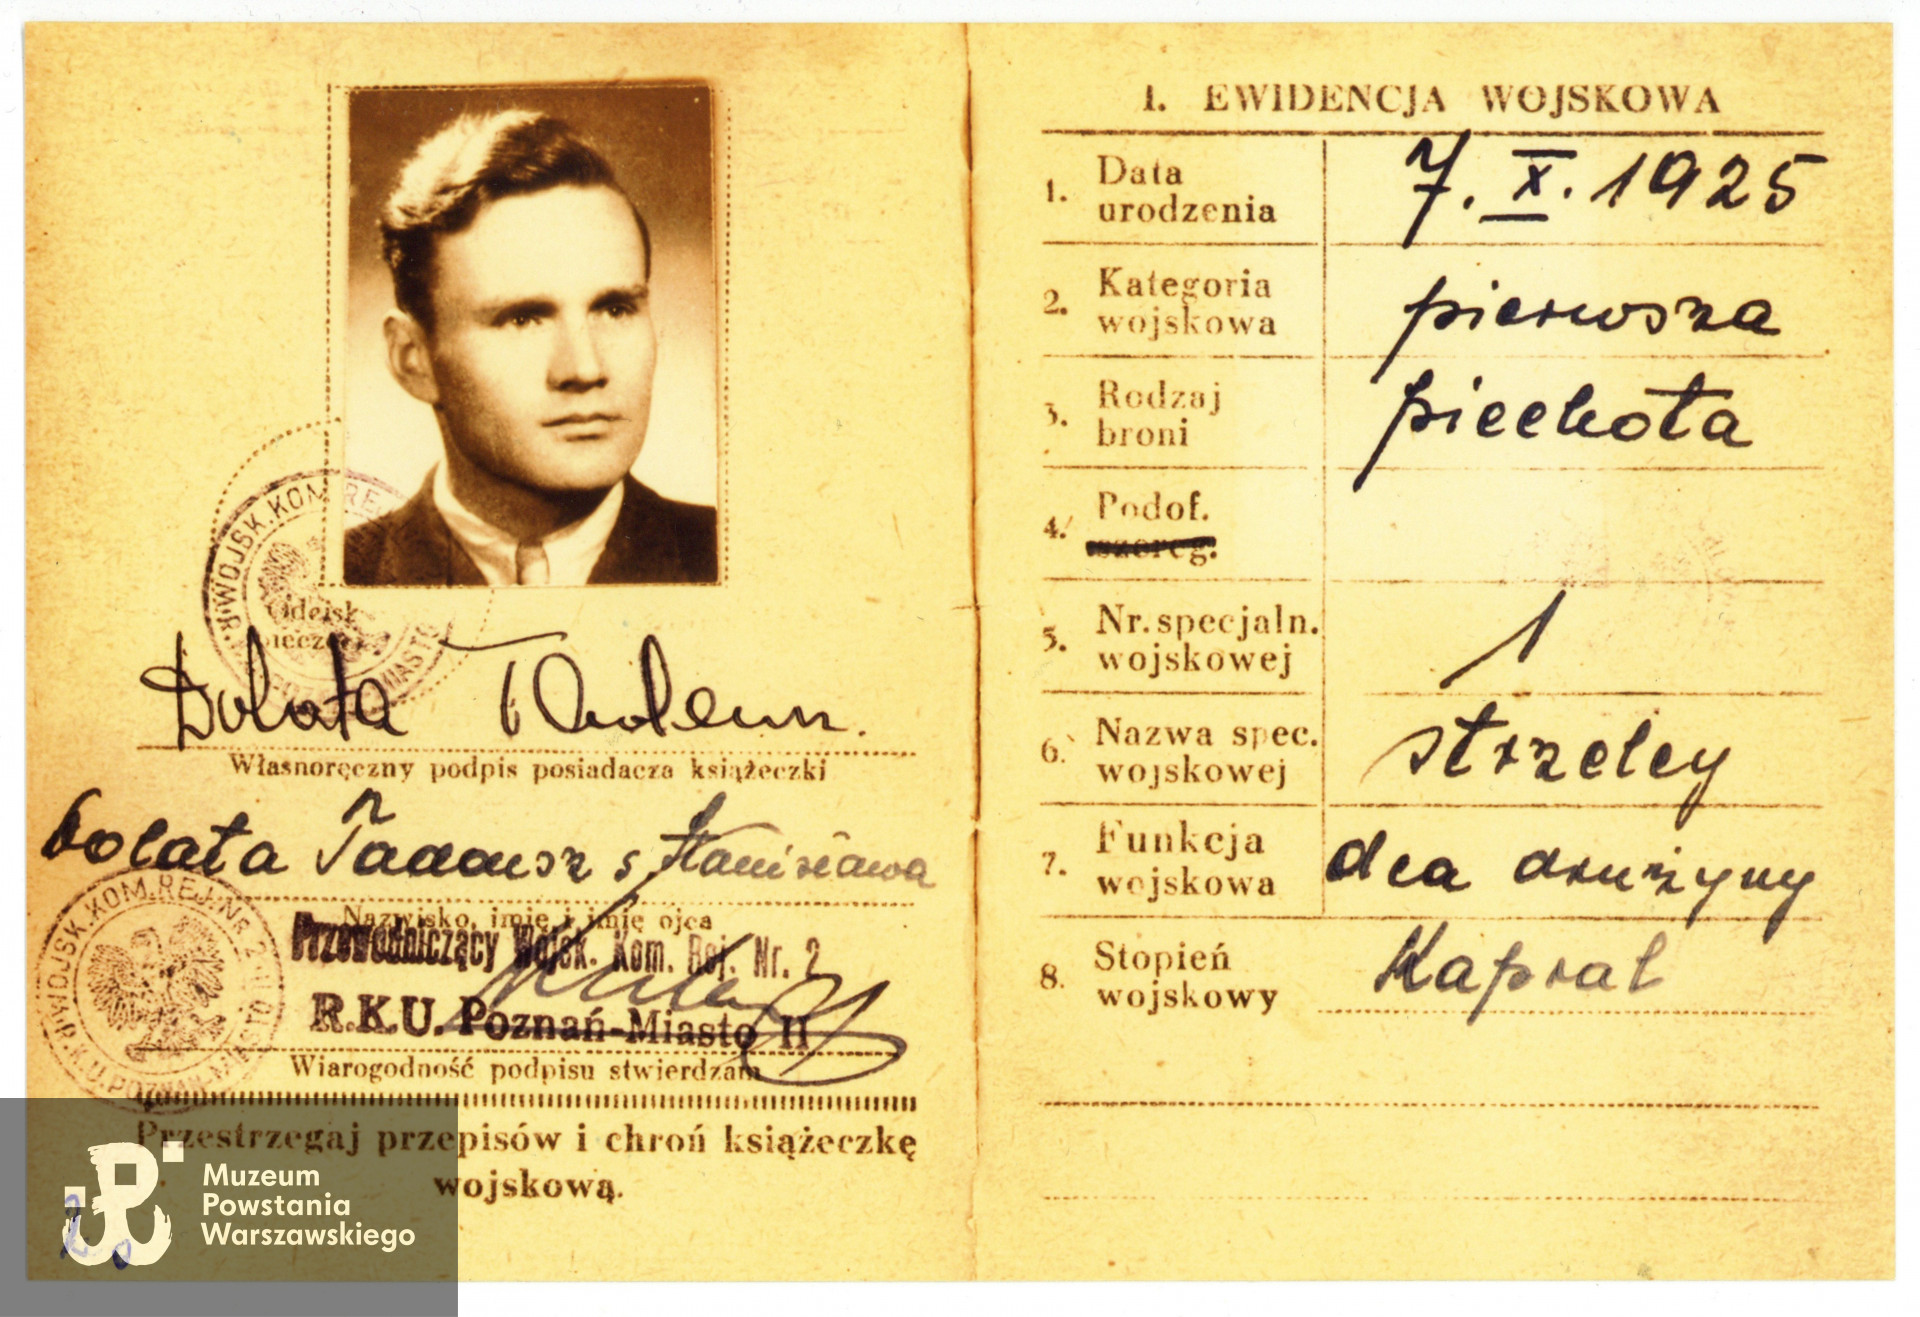 R.WOJSK.KOM.REJ
MIASTO
Odcisk
pieczęci
Dolata Tadeusz.
Własnoręczny podpis posiadacza książeczki
Dolata Tadeusz s. Stanisława
Nazwisko, imię i imię ojca
R.WOJSK.KOM.REJ.NR 2
R.K.U. POZNAŃ-MIASTO II
Przewodniczący Wojsk. Kom. Rej. Nr. 2
R.K.U. Poznań-Miasto II
Wiarogodność podpisu stwierdzam
Przestrzegaj przepisów i chroń książeczkę
wojskową.
Muzeum
Powstania
Warszawskiego
I. EWIDENCJA WOJSKOWA
1. Data urodzenia 7.X.1925
2. Kategoria wojskowa pierwsza
3. Rodzaj broni piechota
4. Podof. szereg.
5. Nr. specjaln. wojskowej 1
6. Nazwa spec. wojskowej strzelcy
7. Funkcja wojskowa dca drużyny
8. Stopień wojskowy Kapral